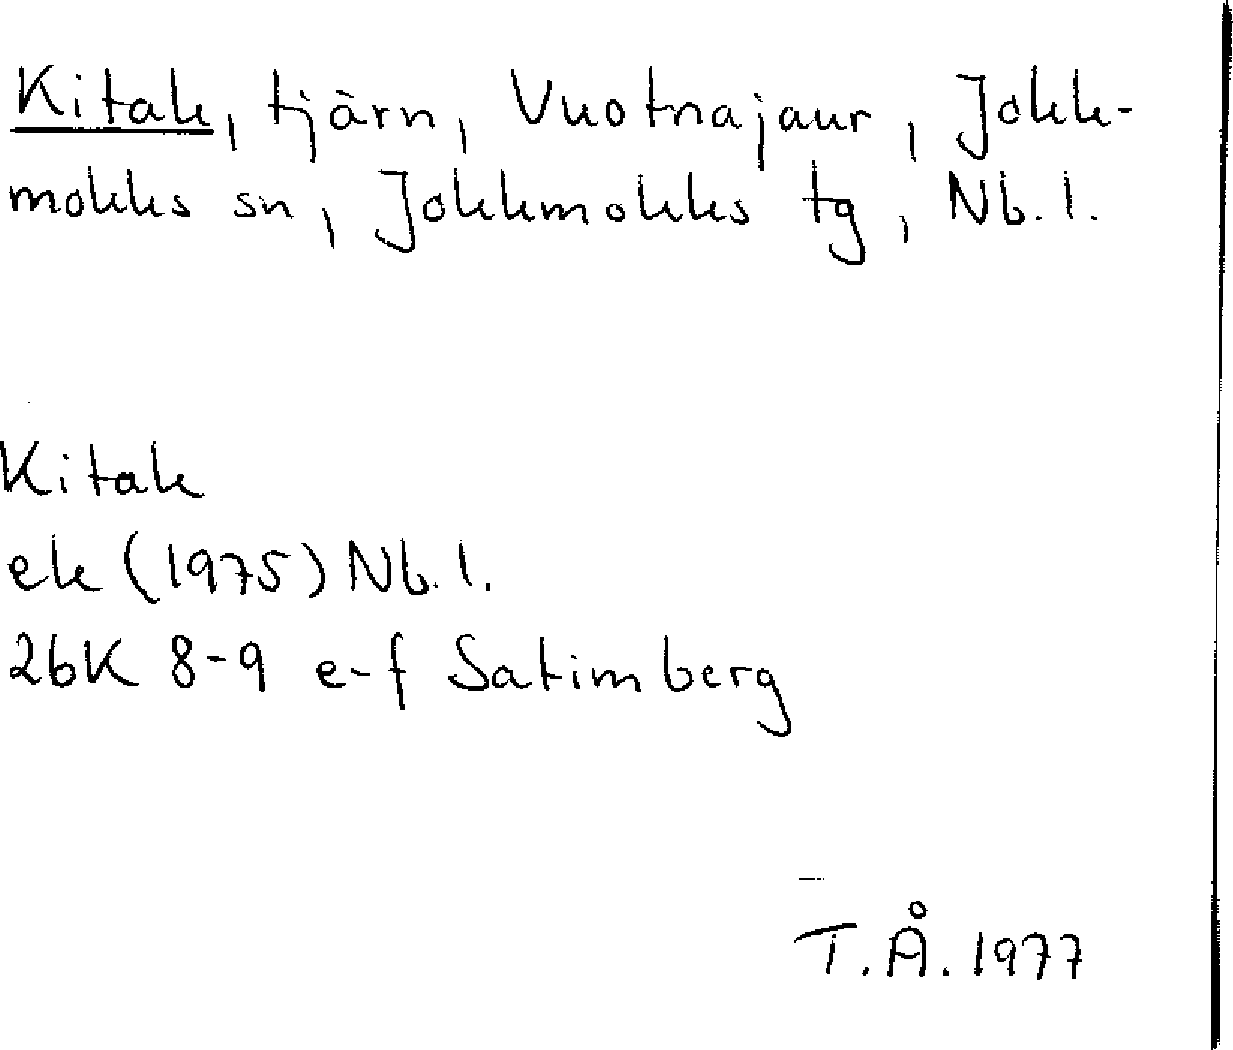 Kitak, tjärn, Vuotnajaur, Jokk-
mokks sn, Jokkmokks tg, Nb. l.
Kitak
ek (1975) Nb. l.
26K 8-9 e-f Satimberg
T. Å. 1977